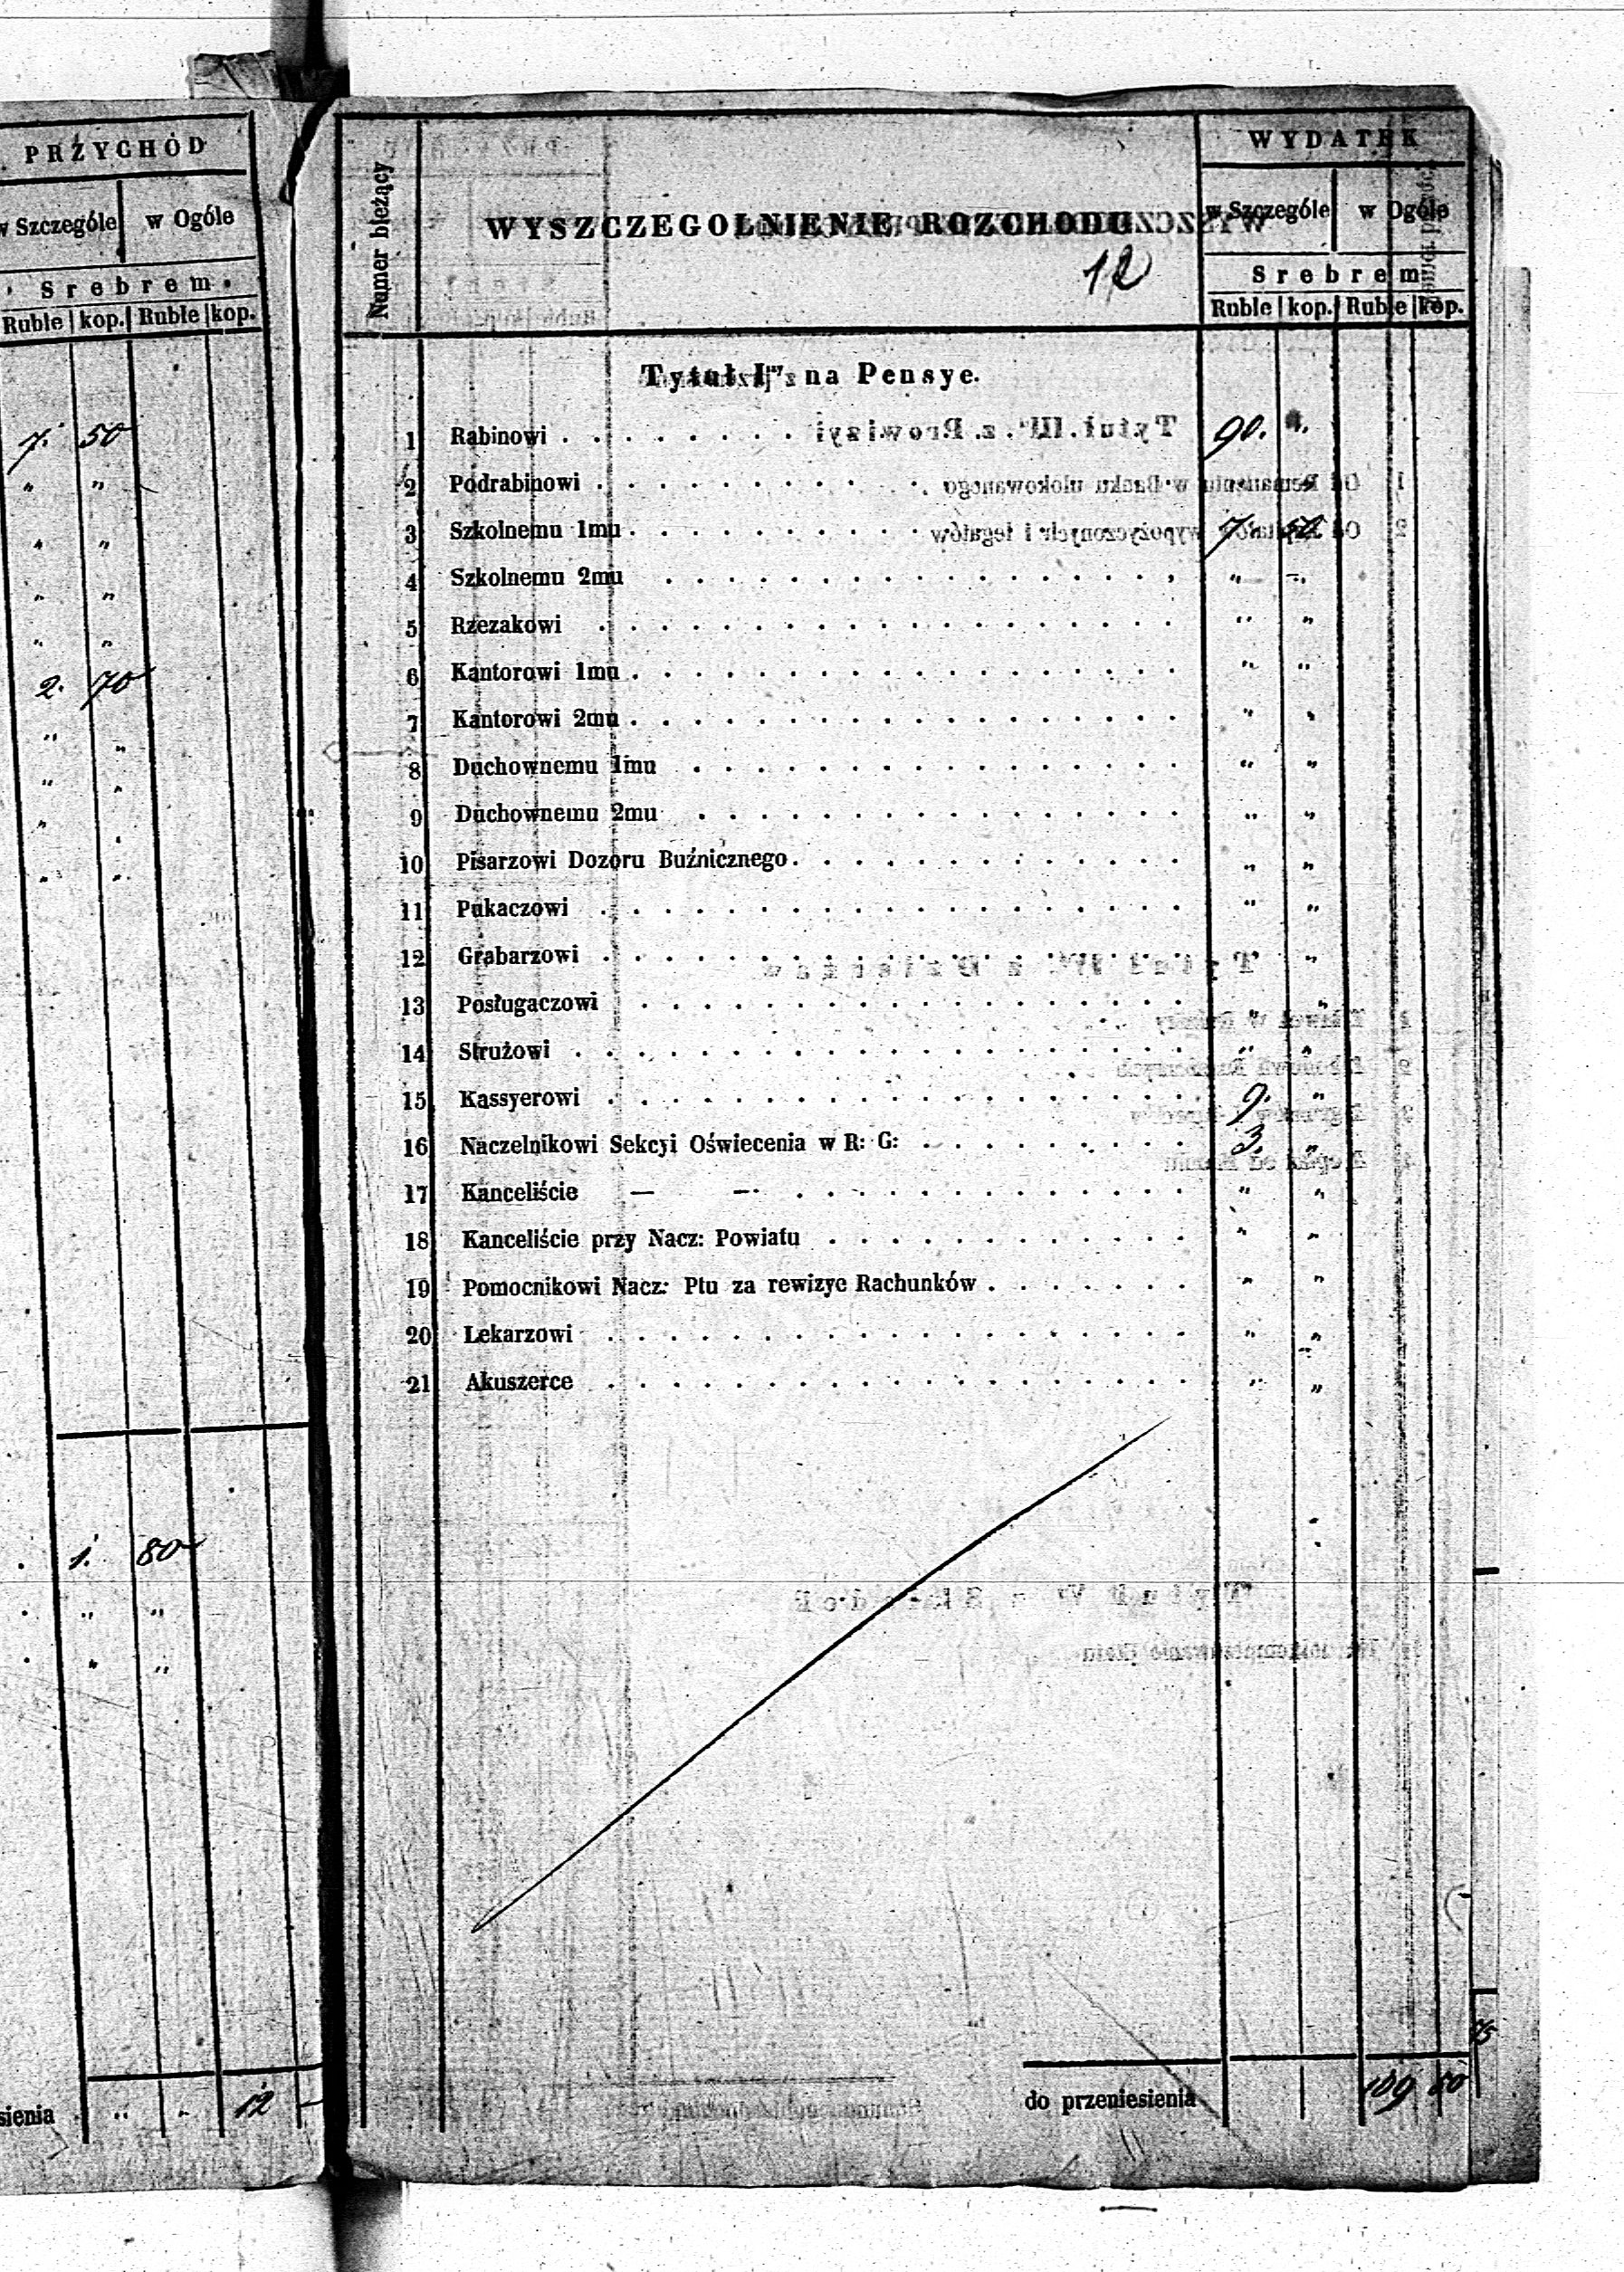 PRZYCHÓD
w Szczególe w Ogóle
Srebrem
Ruble kop. Ruble kop.
7. 50
" "
" "
" "
" "
2. 70
" "
" "
" "
" "
1. 80
" "
" "
sienia " " 12 —
Numer bieżący
WYSZCZEGOLNIENIE ROZCHODU
12
WYDATEK
w Szczególe w Ogóle
Srebrem
Ruble kop. Ruble kop.
Tytuł I na Pensye.
1 Rabinowi 90. "
2 Podrabinowi
3 Szkolnemu 1mu 7. 50
4 Szkolnemu 2mu " "
5 Rzezakowi " "
6 Kantorowi 1mu " "
7 Kantorowi 2mu " "
8 Duchownemu 1mu " "
9 Duchownemu 2mu " "
10 Pisarzowi Dozoru Buźnicznego " "
11 Pukaczowi " "
12 Grabarzowi "
13 Posługaczowi " "
14 Strużowi " "
15 Kassyerowi 9. "
16 Naczelnikowi Sekcyi Oświecenia w R: G: 3. "
17 Kanceliście — — " "
18 Kanceliście przy Nacz: Powiatu " "
19 Pomocnikowi Nacz: Ptu za rewizye Rachunków " "
20 Lekarzowi " "
21 Akuszerce " "
75
do przeniesienia 109 50